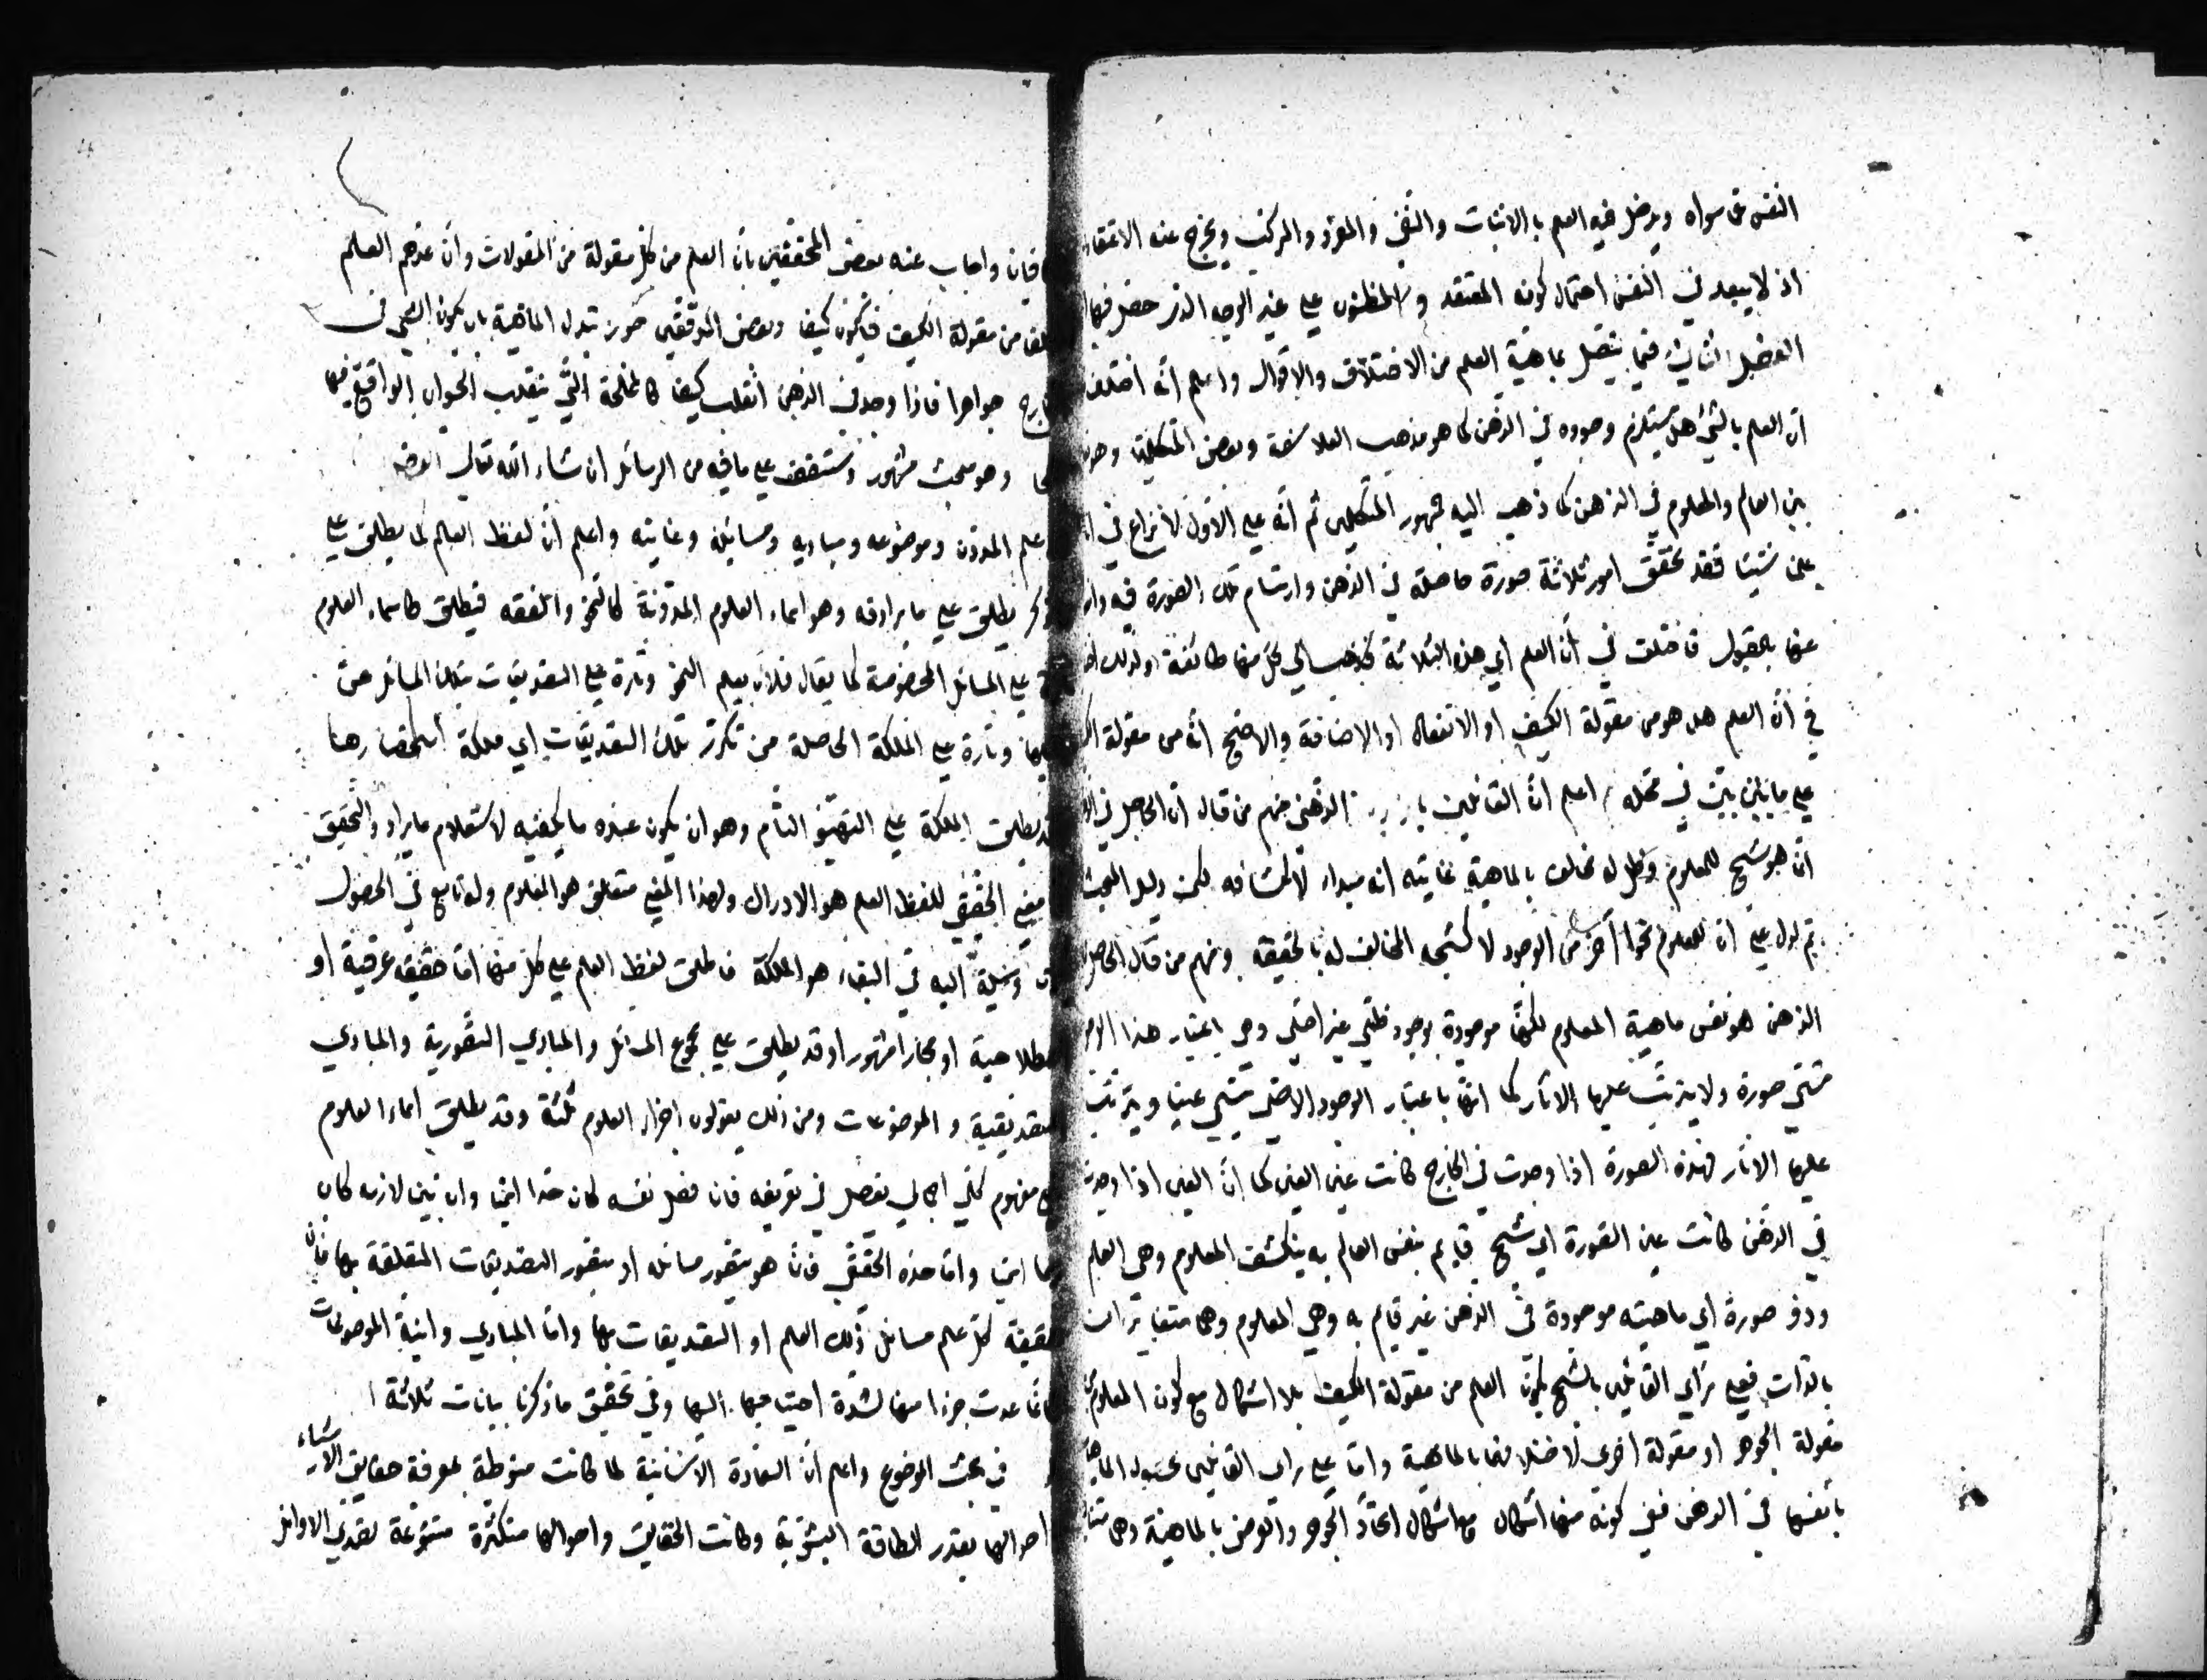 النفس عن سواه ويدخل فيه العلم بالاثبات والنفي والمفرد والمركب ويخرج عنه الاعتقاد
اذ لا يبعد في النفس احتمال كون المعتقد والمظنون على غير الوجه الذي حصل فيها
الفصل الثاني فيما يتصل بماهية العلم من الاختلاف والاقوال واعلم انه اختلف
ان العلم بالشيء هل يستلزم وجوده في الذهن كما هو مذهب الفلاسفة وبعض المتكلمين
بين العالم والمعلوم في الذهن كما ذهب اليه جمهور المتكلمين ثم انه على الاول لا نزاع في
علمنا شيئا فقد تحقق امور ثلاثة صورة حاصلة في الذهن وارتسام تلك الصورة فيه
عنها بالقبول فاختلف في ان العلم اي هذه الثلاثة فذهب الى كل منها طائفة ولذلك
في ان العلم هل هو من مقولة الكيف او الانفعال او الاضافة والاصح انه من مقولة
على ما بين في محله اعلم ان القائلين الذهني منهم من قال ان الحاصل في
انما هو شبح للمعلوم وظل له مخالف بالماهية غايته انه مبداء لانكشافه لكن دليل
تم لدل على ان للمعلوم نحوا آخر من الوجود لا كشبحه المخالف له بالحقيقة ومنهم من قال الحاصل
الذهن هو نفس ماهية المعلوم لكنها موجودة بوجود ظلي غير اصلي وهي باعتبار هذا
تسمى صورة ولا يترتب عليها الاثار كما انها باعتبار الوجود الاصلي تسمى عينا ويترتب
عليها الاثار فهذه الصورة اذا وجدت في الخارج كانت عين العين كما ان العين اذا وجدت
في الذهن كانت عين الصورة اي شبح قايم بنفس العالم به ينكشف المعلوم وهي العلم
وذو صورة اي ماهيته موجودة في الذهن غير قايم به وهي المعلوم وهما متغايران
بالذات فعلى رأي القائلين بالشبح يكون العلم من مقولة الكيف بلا اشكال مع كون المعلوم من
مقولة الجوهر او مقولة اخرى لاختلافها بالماهية واما على راي القائلين بحصول الماهيات
بانفسها في الذهن ففي كونه منها اشكال مع اشكال اتحاد الجوهر والعرض بالماهية وهما
واجاب عنه بعض المحققين بان العلم من كل مقولة من المقولات وان عدهم العلم
من مقولة الكيف وبعض المدققين جوز تبدل الماهية بان يكون الشيء في
جواهرا فاذا وجد في الذهن انقلب كيفا كالملحة التي ينقلب الحيوان الواقع فيها
وهو مبحث مشهور وستقف على ما فيه من الرسائل ان شاء الله تعالى
علم المدون وموضوعه ومباديه ومسائله وغايته واعلم ان لفظ العلم كما يطلق على
يطلق على ما يرادفه وهو اسماء العلوم المدونة كالنحو والفقه فيطلق كاسماء العلوم
على المسائل المخصوصة كما يقال فلان يعلم النحو وتارة على التصديقات بتلك المسائل عن
وتارة على الملكة الحاصلة من تكرر تلك التصديقات اي ملكة استحضارها
يطلق الملكة على التهيؤ التام وهو ان يكون عنده ما يكفيه لاستعلام ما يراد والتحقيق
الحقيقي للفظ العلم هو الادراك ولهذا المعنى متعلق هو المعلوم وله تابع في الحصول
وسيلة اليه في البقاء هو الملكة فاطلق لفظ العلم على كل منها اما حقيقة عرفية او
او مجازا مشهورا وقد يطلق على مجموع المسائل والمبادي التصورية والمبادي
التصديقية والموضوعات ومن ذلك يقولون اجزاء العلوم ثلثة وقد يطلق اسماء العلوم
مفهوم كلي اجمالي يفصل في تعريفه فان فصل نفسه كان حدا اسميا وان بين لازمه كان
اسميا واما حده الحقيقي فانما هو بتصور مسائله او بتصور التصديقات المتعلقة بها فان
حقيقة كل علم مسائل ذلك العلم او التصديقات بها واما المبادي وانية الموضوعات
فانما عدت جزءا منها لشدة احتياجها اليها وفي تحقيق ما ذكرنا بيانات ثلاثة
في بحث الموضوع واعلم ان السعادة الانسانية لما كانت منوطة بمعرفة حقايق الاشياء
احوالها بقدر الطاقة البشرية وكانت الحقايق واحوالها متكثرة متنوعة تصدى الاوائل